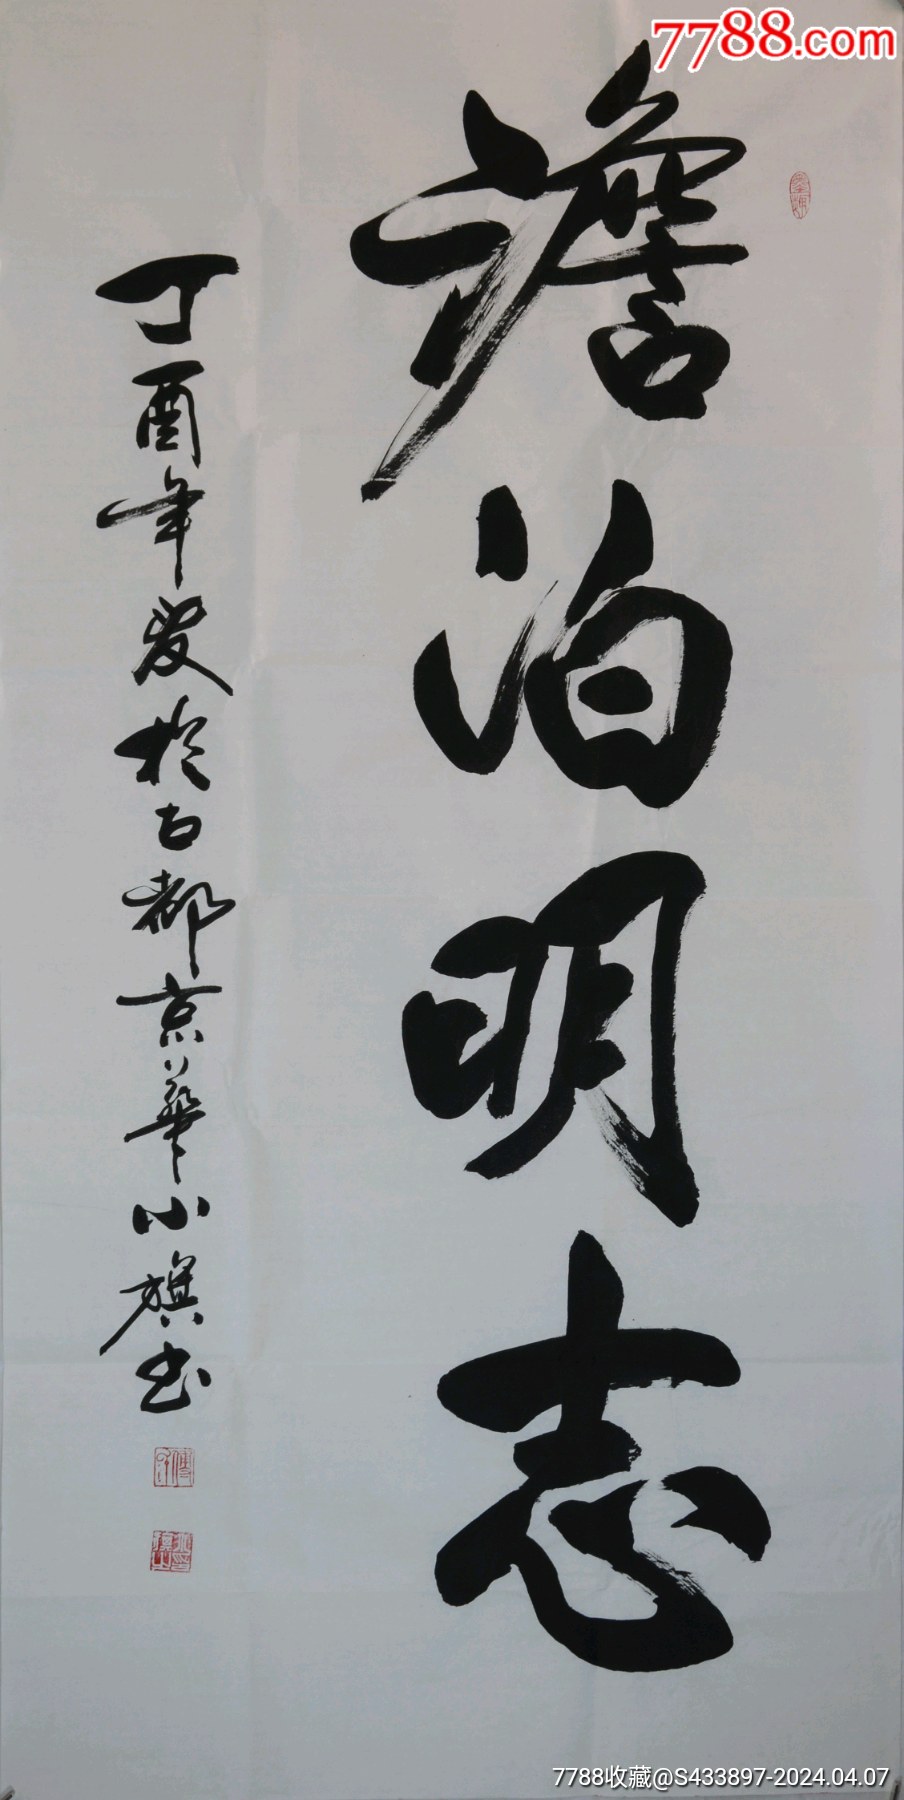 7788.com
澹泊明志
丁酉年夏於古都京華小旗书
7788收藏@S433897-2024.04.07